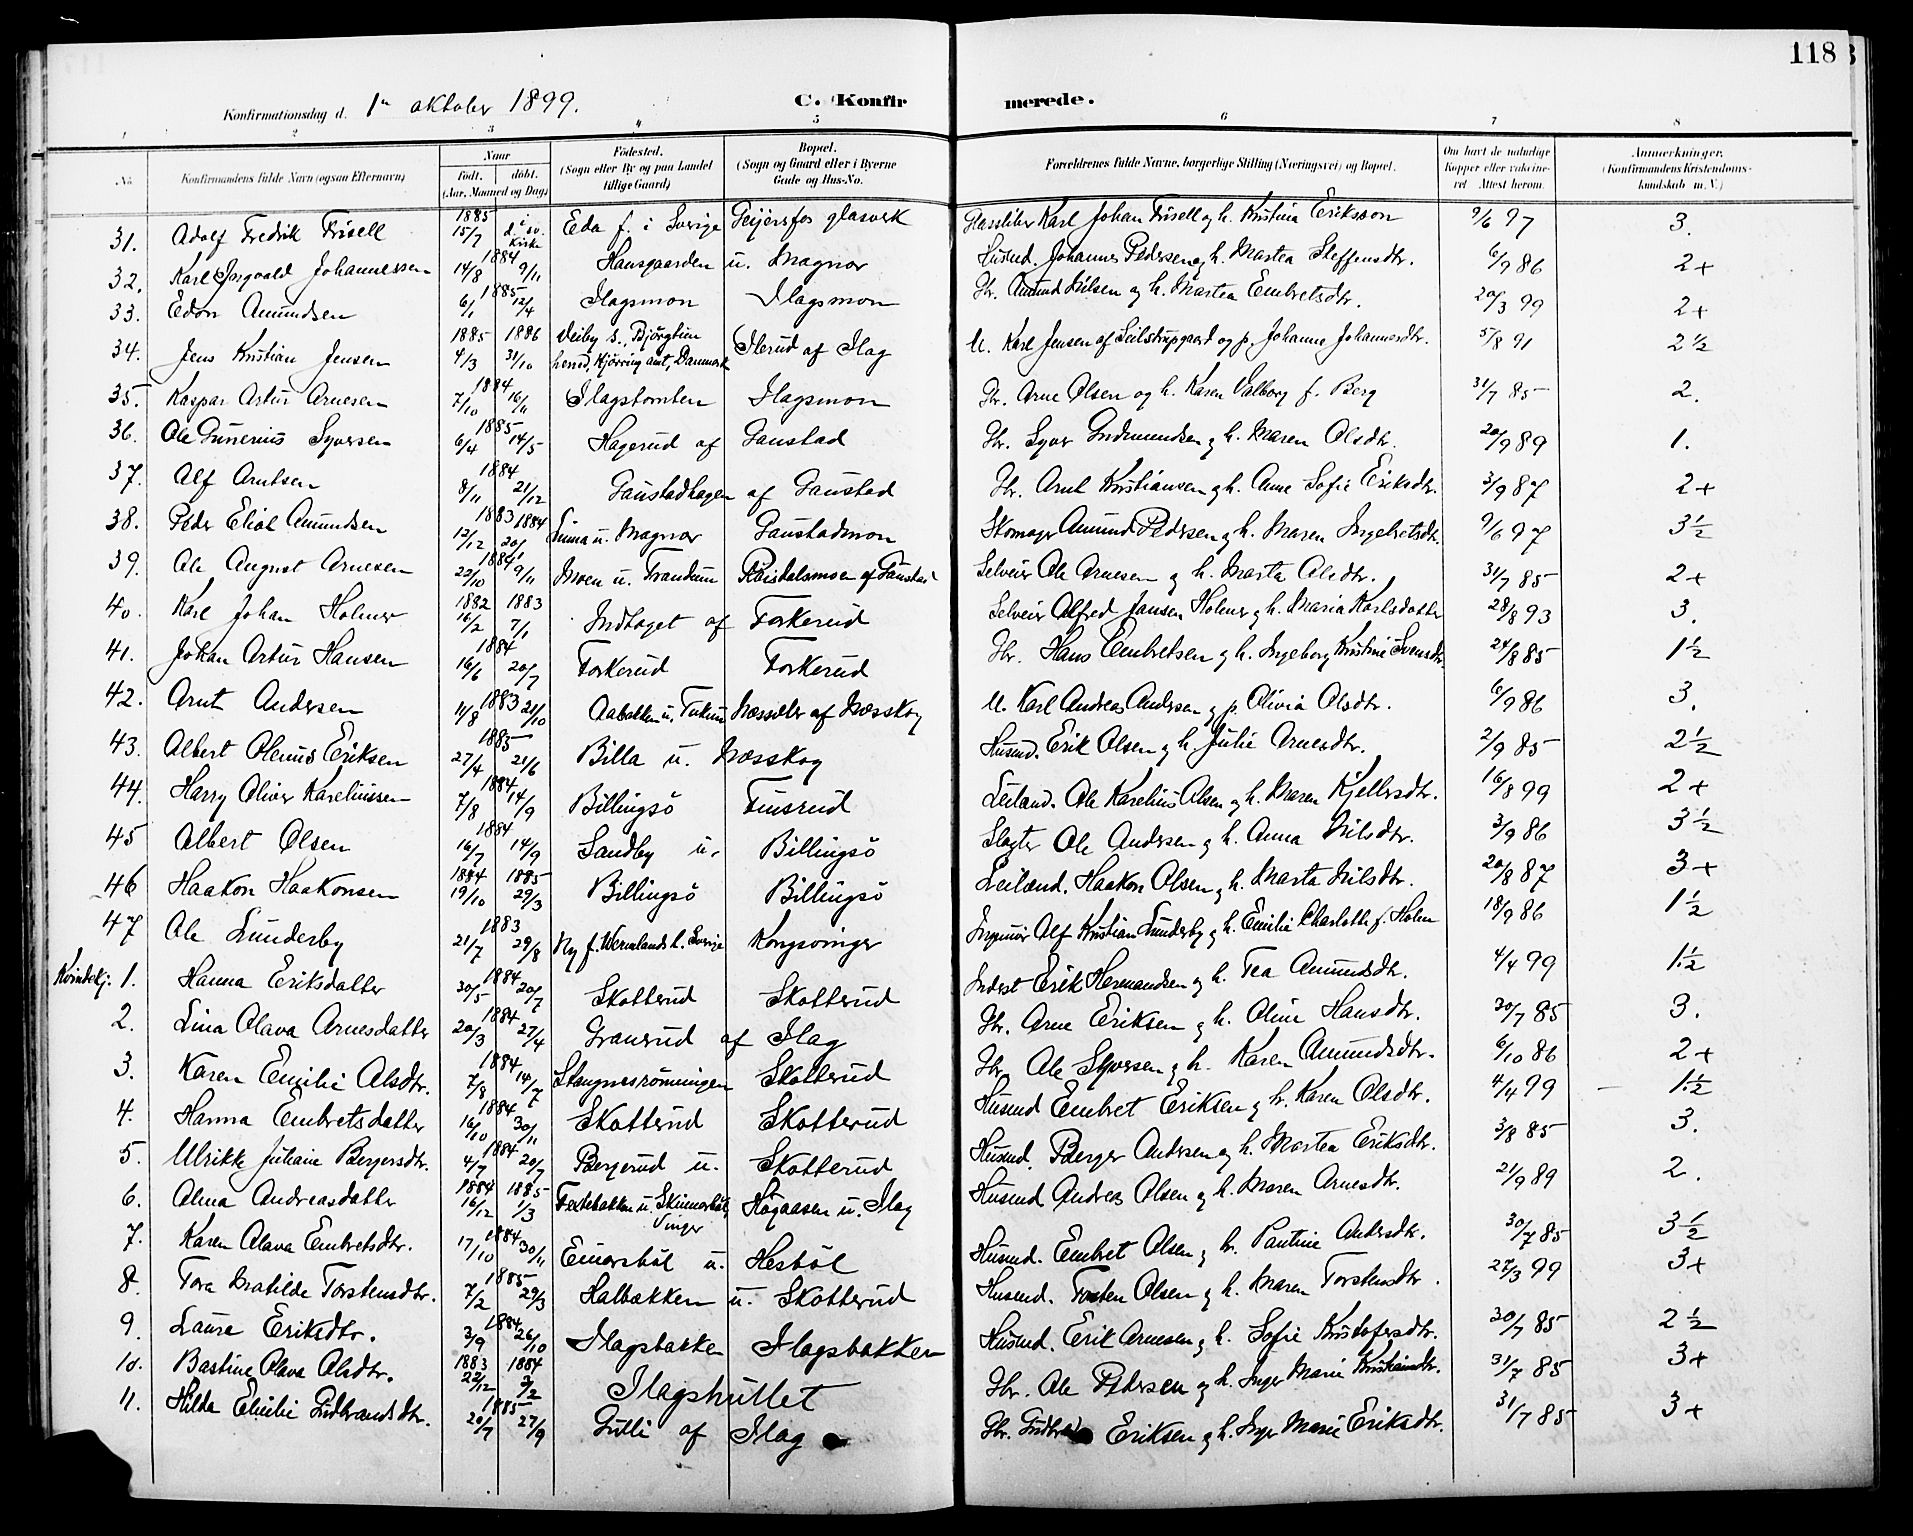 118
Konfirmationsdag d. 1ste oktober 1899. C. Konfirmerede.
1 2 3 4 5 6 7 8
No. Konfirmandens fulde Navn (ogsaa Efternavn) Naar født. døbt. (Aar, Maaned og Dag) Fødested. (Sogn eller By og paa Landet tillige Gaard) Bopæl. (Sogn og Gaard eller i Byerne Gade og Hus-No. Forældrenes fulde Navne, borgerlige Stilling (Næringsvei) og Bopæl. Om havt de naturlige Kopper eller vakcineret Attest herom. Anmærkninger. (Konfirmandens Kristendomskundskab m. V.)
31. Adolf Fredrik Frisell 1885 15/7 d. i sv. Kirke Eda f. i Sverige Geijersfos glasverk Karl Johan Frisell og h. Kristina Eriksson 9/6 97 3.
32. Karl Ingvald Johannessen 1884 14/8 9/11 Hansgaarden u. Magnor Husmd. Johannes Pedersen og h. Martea Steffensdtr. 6/9 86 2+
33. Edon Amundsen 1885 6/1 12/4 Slagsmon Slagsmon Gbr. Amund Nilsen og h. Martea Embretsdtr. 20/3 99 2+
34. Jens Kristian Jensen 1885 4/3 1886 31/10 Veiby s., Bjørgtun herred, Hjørring amt, Danmark Slerud af Slag U. Karl Jensen af Seilstrupgaard og p. Johanne Johannesdtr. 5/8 91 2 1/2
35. Kaspar Artur Arnesen 1884 7/10 16/11 Slagstomten Slagsmon Gbr. Arne Olsen og h. Karen Valborg f. Berg 31/7 85 2.
36. Ole Gunerius Syversen 1885 6/4 14/5 Hagerud af Gaustad Gbr. Syver Gudmundsen og h. Maren Olsdtr. 20/9 89 1.
37. Alf Arntsen 1884 8/11 21/12 Gaustadhagen af Gaustad Gbr. Arnt Kristiansen og h. Anne Sofie Eriksdtr. 3/9 87 2+
38. Peder Eliot Amundsen 1883 12/12 1884 20/1 Linna u. Magnor Gaustadmon Skomager Amund Pedersen og h. Maren Ingebretsdtr. 9/6 97 3 1/2
39. Ole August Arnesen 1884 22/10 9/11 Moen u. Trandum Raisdalsmoen af Gaustad Selveier Ole Arnesen og h. Marta Olsdtr. 31/7 85 2+
40. Karl Johan Holmer 1882 16/2 1883 7/1 Indtaget af Torkerud Selveier Alfred Jansen Holmer og h. Maria Karlsdatter 28/8 93 3.
41. Johan Artur Hansen 1884 16/6 20/7 Torkerud Torkerud Gbr. Hans Embretsen og h. Ingeborg Kristine Svensdtr. 24/8 85 1 1/2
42. Arnt Andersen 1883 11/8 21/10 Aabakken u. Næssilla af Næsskog U. Karl Andreas Andersen og p. Olivia Olsdtr. 6/9 86 3.
43. Albert Olenius Eriksen 1885 27/4 21/6 Billa u. Næsskog Husmd. Erik Olsen og h. Julie Arnesdtr. 2/9 85 2 1/2
44. Harry Oliver Kareliussen 1884 7/8 14/9 Billingsö Finsrud Leilænd. Ole Karelius Olsen og h. Maren Kjellersdtr. 16/8 99 2+
45 Albert Olsen 1884 16/7 14/9 Sandby u. Billingsö Slagter Ole Andersen og h. Anna Nilsdtr. 3/9 86 3 1/2
46 Haakon Haakonsen 1884 19/10 1885 29/3 Billingsö Billingsö Leilænd. Haakon Olsen og h. Marta Nilsdtr. 20/8 87 3+
47 Ole Lunderby 1883 21/7 29/8 Ny f. Wermlands l. Sverige Kongsvinger Ingeniør Alf Kristian Lunderby og h. Emilia Charlotte f. Holm 18/9 86 1 1/2
Kvindekj. 1. Hanna Eriksdatter 1884 30/5 20/7 Skotterud Skotterud Inderst Erik Hermandsen og h. Tea Amundsdtr. 4/4 99 1 1/2
2. Lina Olava Arnesdatter 1884 20/3 27/4 Granerud af Slag Gbr. Arne Eriksen og h. Oline Hansdtr. 30/7 85 3.
3. Karen Emilie Olsdtr. 1884 7/8 14/7 Stangnesrömningen Skotterud Gbr. Ole Syversen og h. Karen Amundsdtr. 6/10 86 2+
4. Hanna Embretsdatter 1884 16/10 30/11 Skotterud Skotterud Husmd Embret Eriksen og h. Karen Olsdtr. 4/4 99 1 1/2
5. Ulrikke Juliane Bergersdtr. 1884 4/7 20/7 Bergerud u. Skotterud Husmd. Berger Andersen og h. Martea Eriksdtr. 3/8 85 3.
6. Alma Andreasdatter 1884 16/12 1885 1/3 Vinger Högaasen u. Slag Husmd Andreas Olsen og h. Maren Arnesdtr. 21/9 89 2.
7. Karen Olava Embretsdtr. 1884 17/10 30/11 Emarsböl u. Hesböl Husmd. Embret Olsen og h. Pauline Andersdtr. 30/7 85 3 1/2
8. Tora Matilde Torstensdtr. 1885 7/2 29/3 Halbækken u. Skotterud Husmd. Torsten Olsen og h. Maren Torstensdtr. 27/3 99 3+
9. Laura Eriksdtr. 1884 3/9 26/10 Slagsbakke Slagsbakken Husmd. Erik Arnesen og h. Sofie Kristofersdtr. 30/7 85 2 1/2
10. Bastine Olava Olsdtr. 1883 22/12 1884 3/2 Slagshullet Gbr. Ole Pedersen og h. Inger Marie Kristiansdtr. 31/7 85 3+
11. Hilda Emilie Gudbrandsdtr. 1885 20/7 27/9 Gulli af Slag Gbr. Gudbrand Eriksen og h. Inger Marie Eriksdtr. 31/7 85 3+